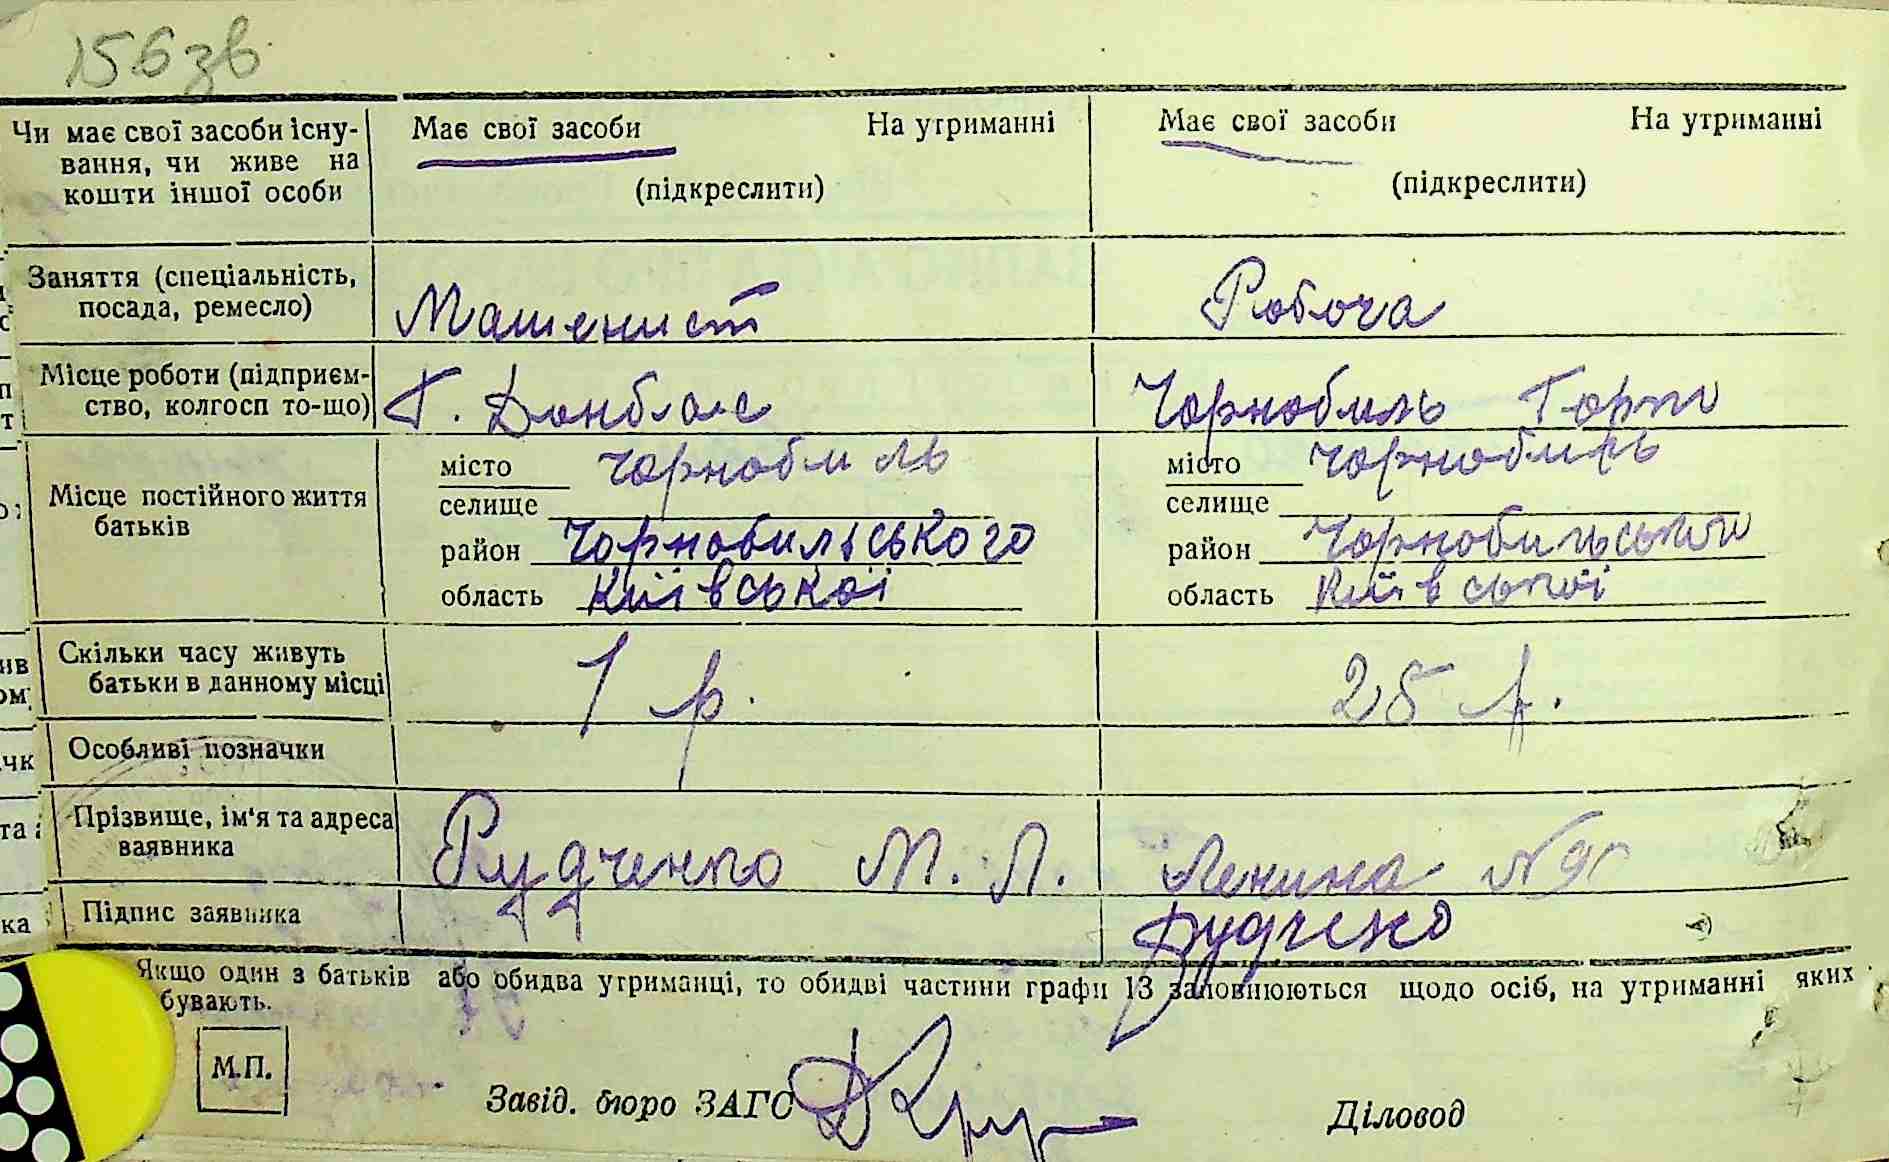 156 зв
Чи має свої засоби існу-
вання, чи живе на
кошти іншої особи
Має свої засоби На утриманні
(підкреслити)
Має свої засоби На утриманні
(підкреслити)
Заняття (спеціальність,
посада, ремесло)
Машенист
Робоча
Місце роботи (підприєм-
ство, колгосп то-що)
Г. Донблас
Чорнобиль Горпо
Місце постійного життя
батьків
місто Чорнобиль
селище
район Чорнобильського
область Київської
місто Чорнобиль
селище
район Чорнобильського
область Київської
Скільки часу живуть
батьки в данному місці
1 р.
25 р.
Особливі позначки
Прізвище, ім'я та адреса
заявника
Рудченко М. Л.
Ленина №
Підпис заявника
Рудченко
Якщо один з батьків або обидва утриманці, то обидві частини графи 13 заповнюються щодо осіб, на утриманні яких
бувають.
М.П.
Завід. бюро ЗАГС
Діловод